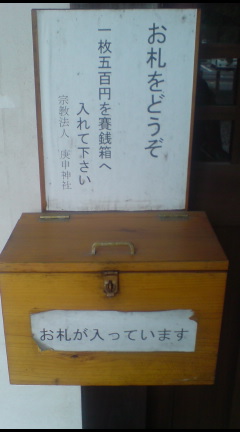 お札をどうぞ
一枚五百円を賽銭箱へ
入れて下さい
宗教法人　庚申神社
お札が入っています